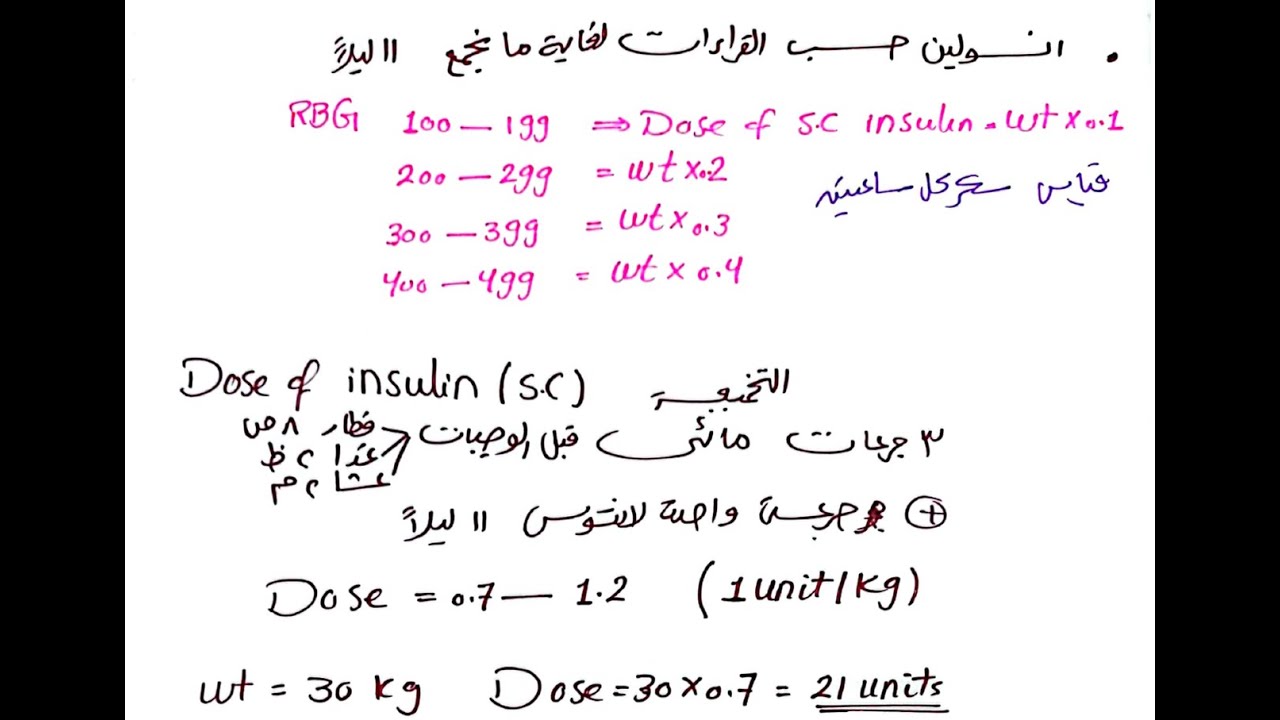 • انسولين حسب القراءات لغاية ما نجمع 11 ليلاً
RBG 100 — 199 ⇒ Dose of S.C insulin = wt x 0.1
200 — 299 = wt x 0.2
قياس سكر كل ساعتين
300 — 399 = wt x 0.3
400 — 499 = wt x 0.4
Dose of insulin (S.C)
٣ جرعات مائى قبل الوجبات فطار ٨ ص
غدا ٢ ظ
عشا م
⊕ جرعة واحدة لانتوس 11 ليلاً
Dose = 0.7 — 1.2 (1 unit/kg)
wt = 30 kg Dose = 30 x 0.7 = 21 units